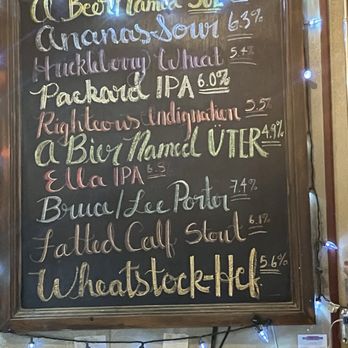 A Beer Named SOL
Ananas Sour 6.3%
Huckleberry Wheat 5.4%
Packard IPA 6.0%
Righteous Indignation 5.5%
A Bier Named ÜTER 4.9%
Ella IPA 6.5
Bruce/Lee Porter 7.4%
Fatted Calf Stout 6.1%
Wheatstock-Hef 5.6%